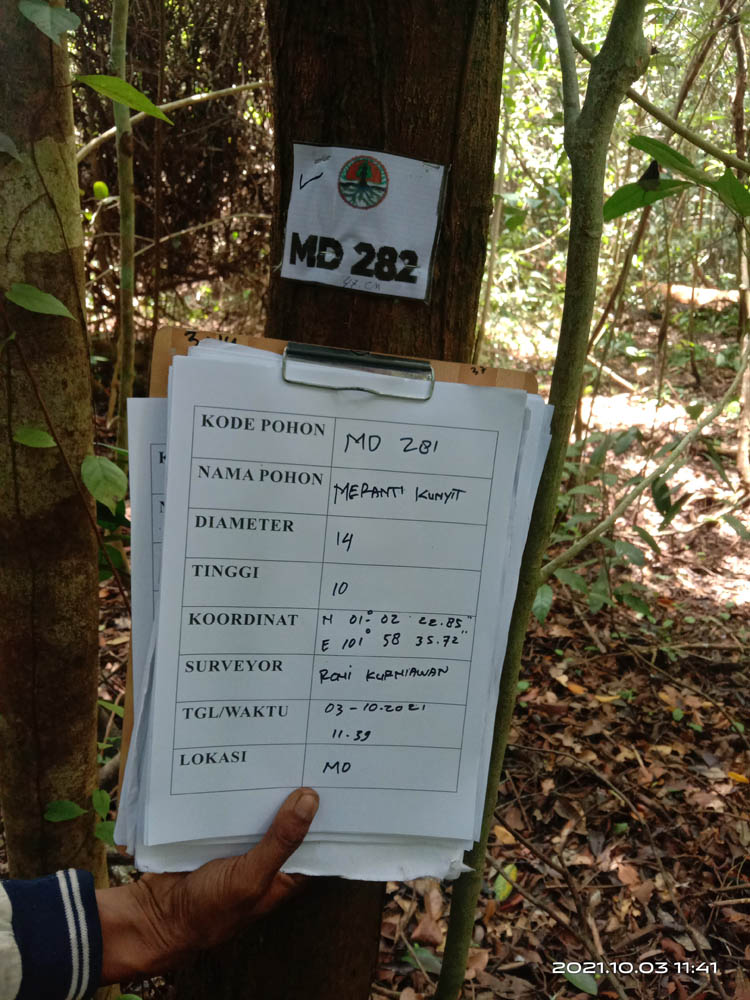 MD 282
47 CM
KODE POHON MD 281
NAMA POHON MERANTI KUNYIT
DIAMETER 14
TINGGI 10
KOORDINAT N 01° 02 22.85"
E 101° 58 35.72"
SURVEYOR RONI KURNIAWAN
TGL/WAKTU 03-10.2021
11.39
LOKASI MD
2021.10.03 11:41